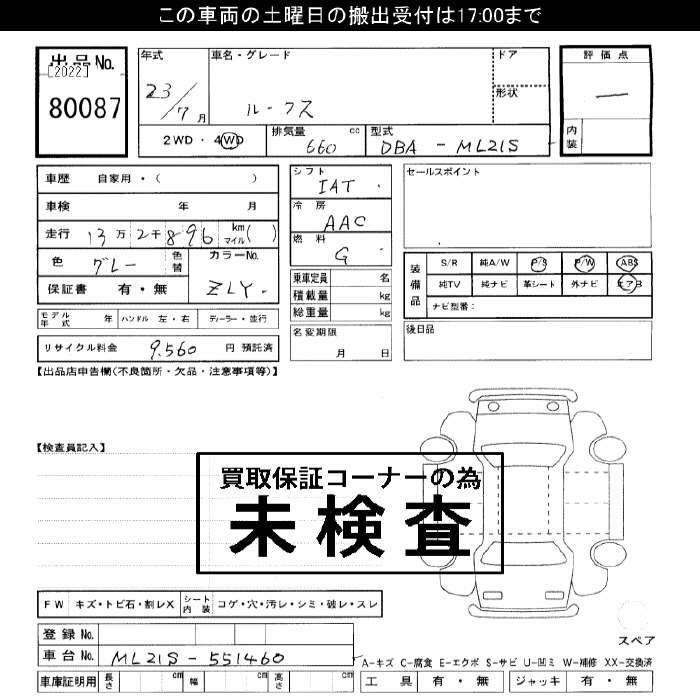 この車両の土曜日の搬出受付は17:00まで
出品No. [2022] 80087
年式 23/7月
車名・グレード ルークス
ドア
形状
評価点 —
内装
2WD・4WD
排気量 660 cc
型式 DBA - ML21S
車歴 自家用・( )
車検 年 月
走行 13万2千896 km マイル( )
色 グレー 色替 カラーNo. ZLY
保証書 有・無
モデル年式 年 ハンドル 左・右 ディーラー・並行
リサイクル料金 9,560 円 預託済
シフト IAT
冷房 AAC
燃料 G
乗車定員 名
積載量 kg
総重量 kg
名変期限 月 日
セールスポイント
装備品 S/R 純A/W P/S P/W ABS
純TV 純ナビ 革シート 外ナビ エアB
ナビ型番:
後日品
【出品店申告欄(不良箇所・欠品・注意事項等)】
【検査員記入】
買取保証コーナーの為
未検査
FW キズ・トビ石・割レX シート内装 コゲ・穴・汚レ・シミ・破レ・スレ
スペア
登録No.
車台No. ML21S-551460
A-キズ C-腐食 E-エクボ S-サビ U-凹ミ W-補修 XX-交換済
車庫証明用 長さ cm 幅 cm 高さ cm
工具 有・無 ジャッキ 有・無